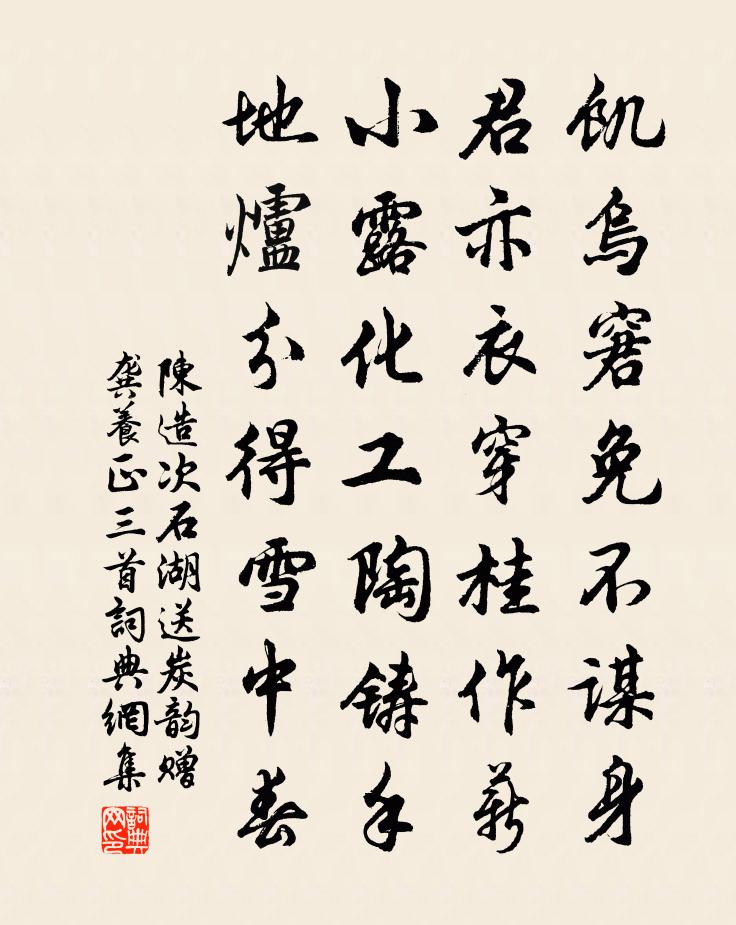 飢烏窘免不謀身
君亦衣穿桂作薪
小露化工陶鑄手
地爐分得雪中春
陳造次石湖送炭韵贈
龔養正三首詞典網集
詞典
网印